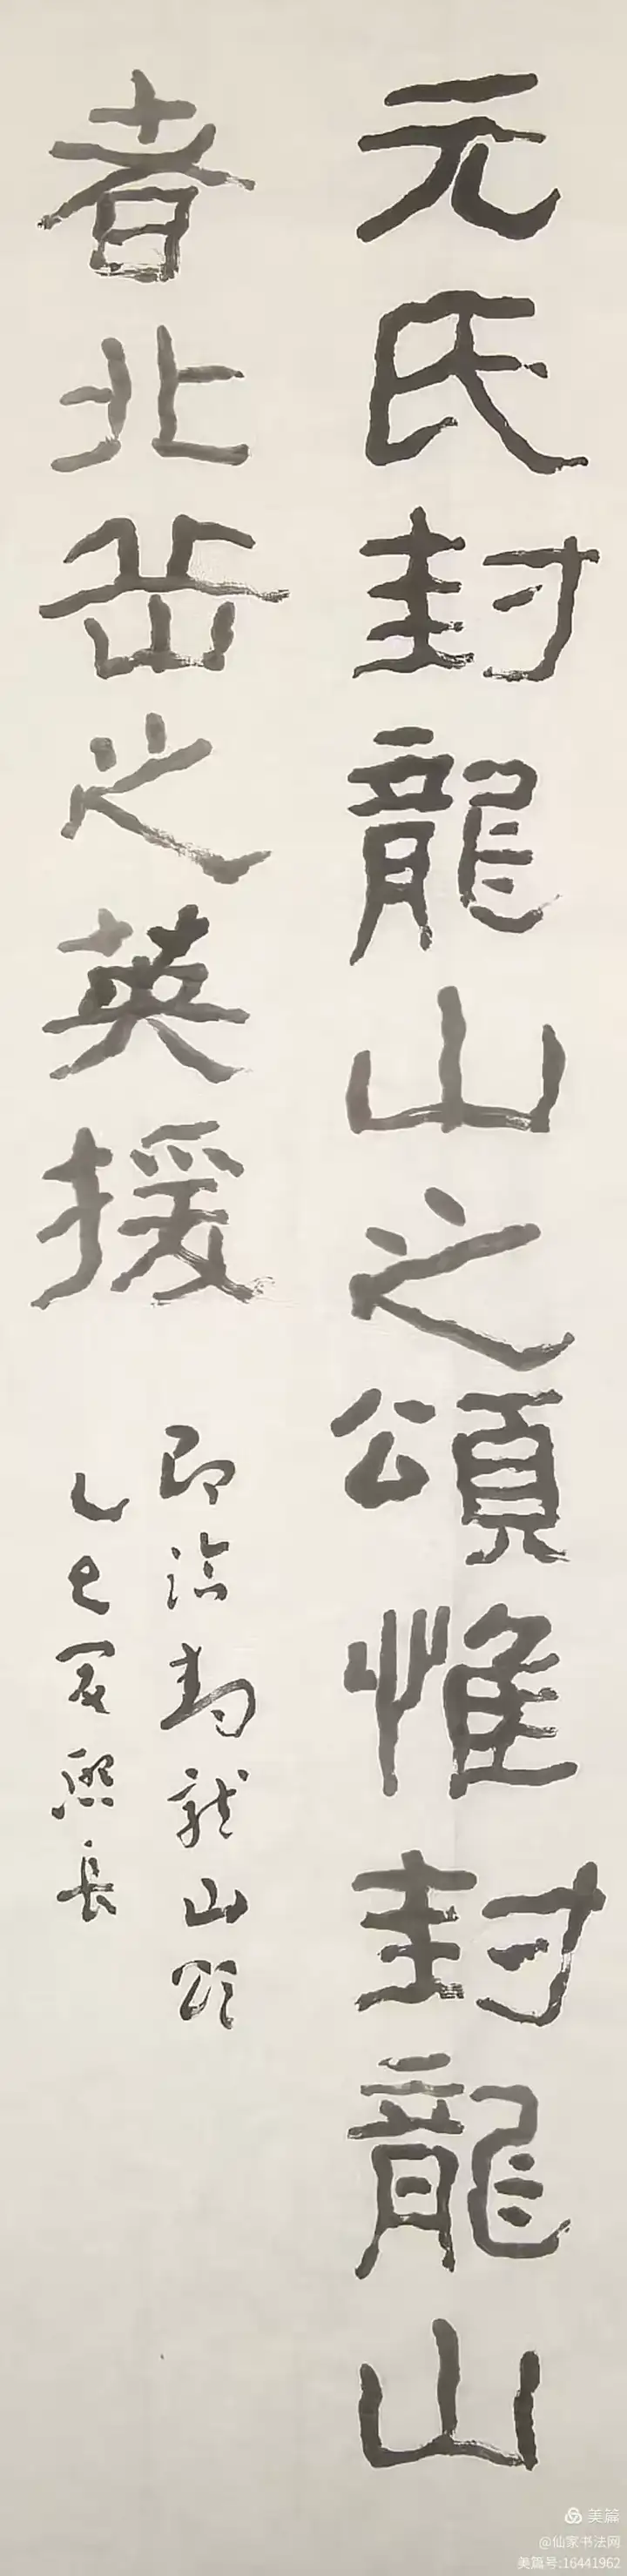 元氏封龍山之頌惟封龍山
者北岳之英援
即臨封龍山頌
乙巳夏熙長
美篇
@仙家书法网
美篇号:16441962